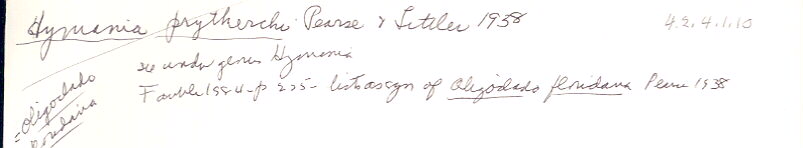 Hymania prytherchi Pearse & Littler 1938 4.2.4.1.10
see under genus Hymania
Fauble 1984 - p 225 - lists as syn of Oligoclado floridana Pearse 1938
= Oligoclado
floridana